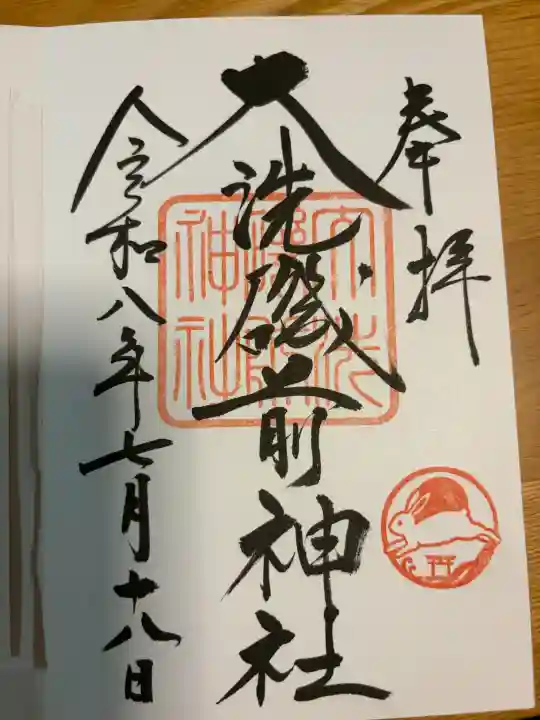 奉拝
大洗磯前神社
大洗
磯前
神社
令和八年七月十八日